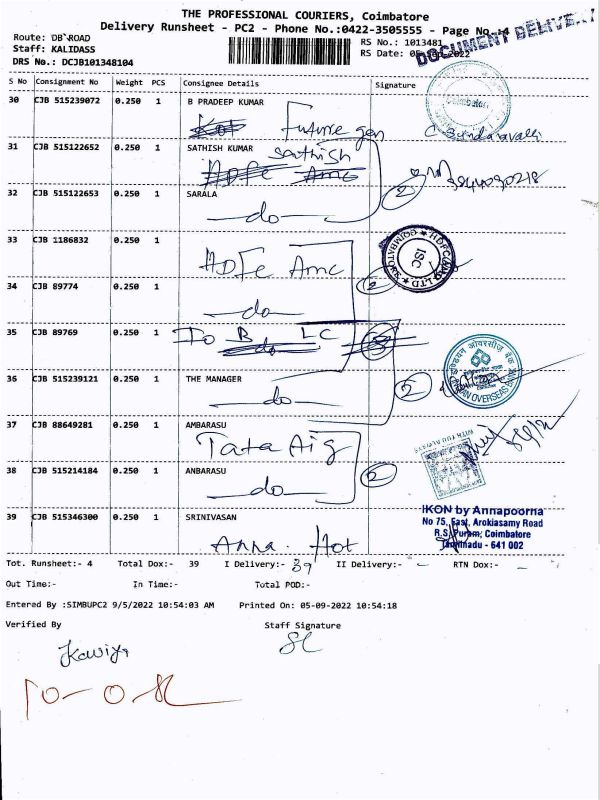 THE PROFESSIONAL COURIERS, Coimbatore
Delivery Runsheet - PC2 - Phone No.:0422-3505555 - Page No.-4
DOCUMENT DELIVERY
Route: DB ROAD
RS No.: 1013481
Staff: KALIDASS
RS Date: 05 2022
DRS No.: DCJB101348104
S No Consignment No Weight PCS Consignee Details Signature
30 CJB 515239072 0.250 1 B PRADEEP KUMAR
Coimbatore
Future gen
31 CJB 515122652 0.250 1 SATHISH KUMAR
Sathish
HDFC AMC
32 CJB 515122653 0.250 1 SARALA
2
—do—
33 CJB 1186832 0.250 1
HDFC Amc
ISC
34 CJB 89774 0.250 1
2
—do—
35 CJB 89769 0.250 1
I O B LC
do
36 CJB 515239121 0.250 1 THE MANAGER
2
—do—
इण्डियन ओवरसीज़ बैंक
INDIAN OVERSEAS BANK
37 CJB 88649281 0.250 1 AMBARASU
Tata Aig
38 CJB 515214184 0.250 1 ANBARASU
2
—do—
39 CJB 515346300 0.250 1 SRINIVASAN
Anna. Hot
IKON by Annapoorna
No 75, East, Arokiasamy Road
R.S. Puram, Coimbatore
Tamilnadu - 641 002
Tot. Runsheet:- 4 Total Dox:- 39 I Delivery:- 39 II Delivery:- RTN Dox:-
Out Time:- In Time:- Total POD:-
Entered By :SIMBUPC2 9/5/2022 10:54:03 AM Printed On: 05-09-2022 10:54:18
Verified By Staff Signature
Kawiya